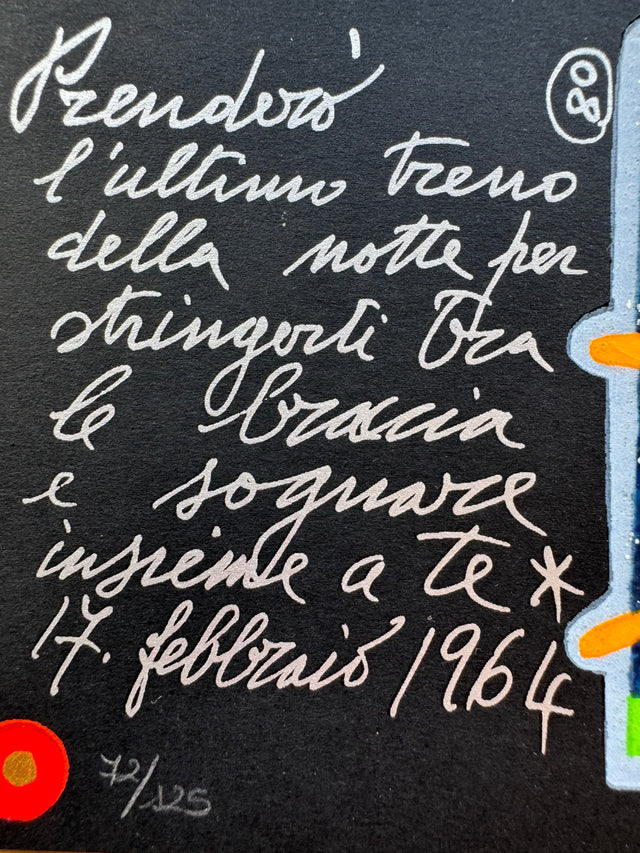 Prenderò
80
l'ultimo treno
della notte per
stringerti tra
le braccia
e sognare
insieme a te *
17. febbraio 1964
72/125